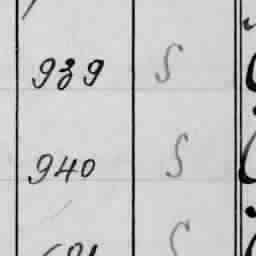 939 S
940 S
S